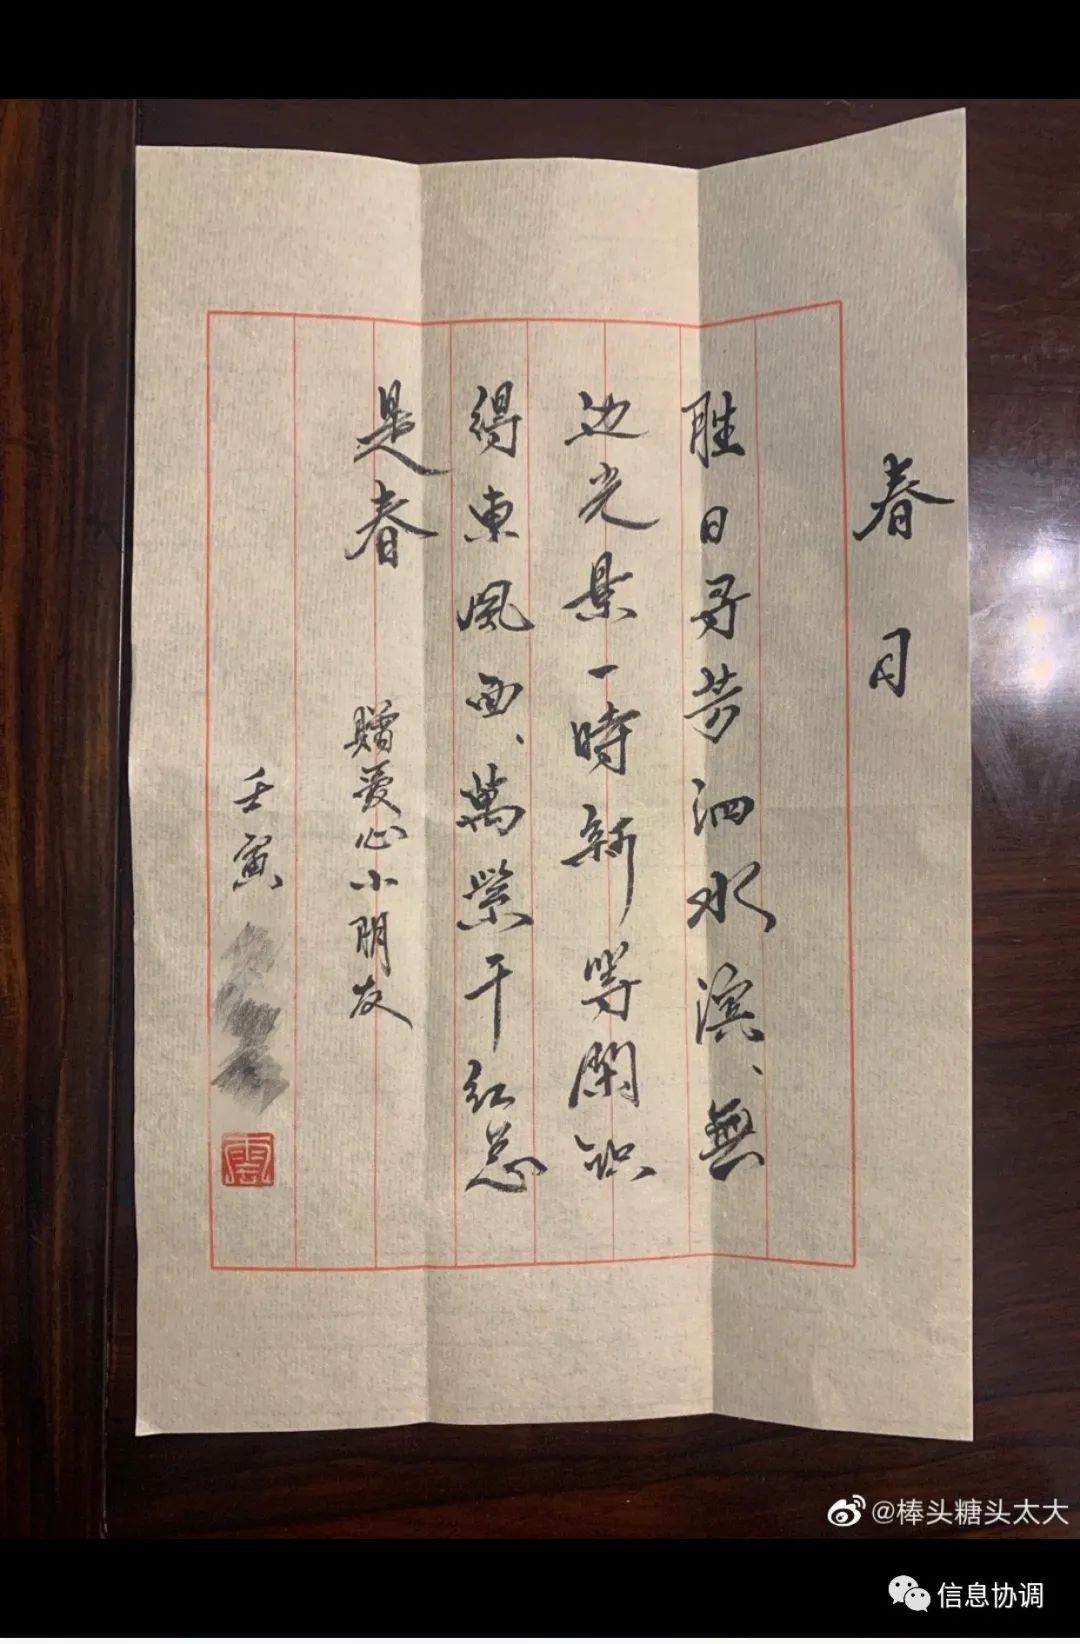 春日
胜日寻芳泗水滨、無
边光景一時新等閑识
得東風面、萬紫千红总
是春
赠爱心小朋友
壬寅
雲
@棒头糖头太大
信息协调